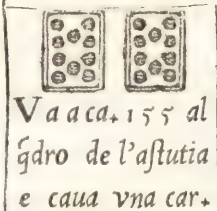 Va a ca. 155 al
q̃dro de l'aſtutia
e caua vna car.